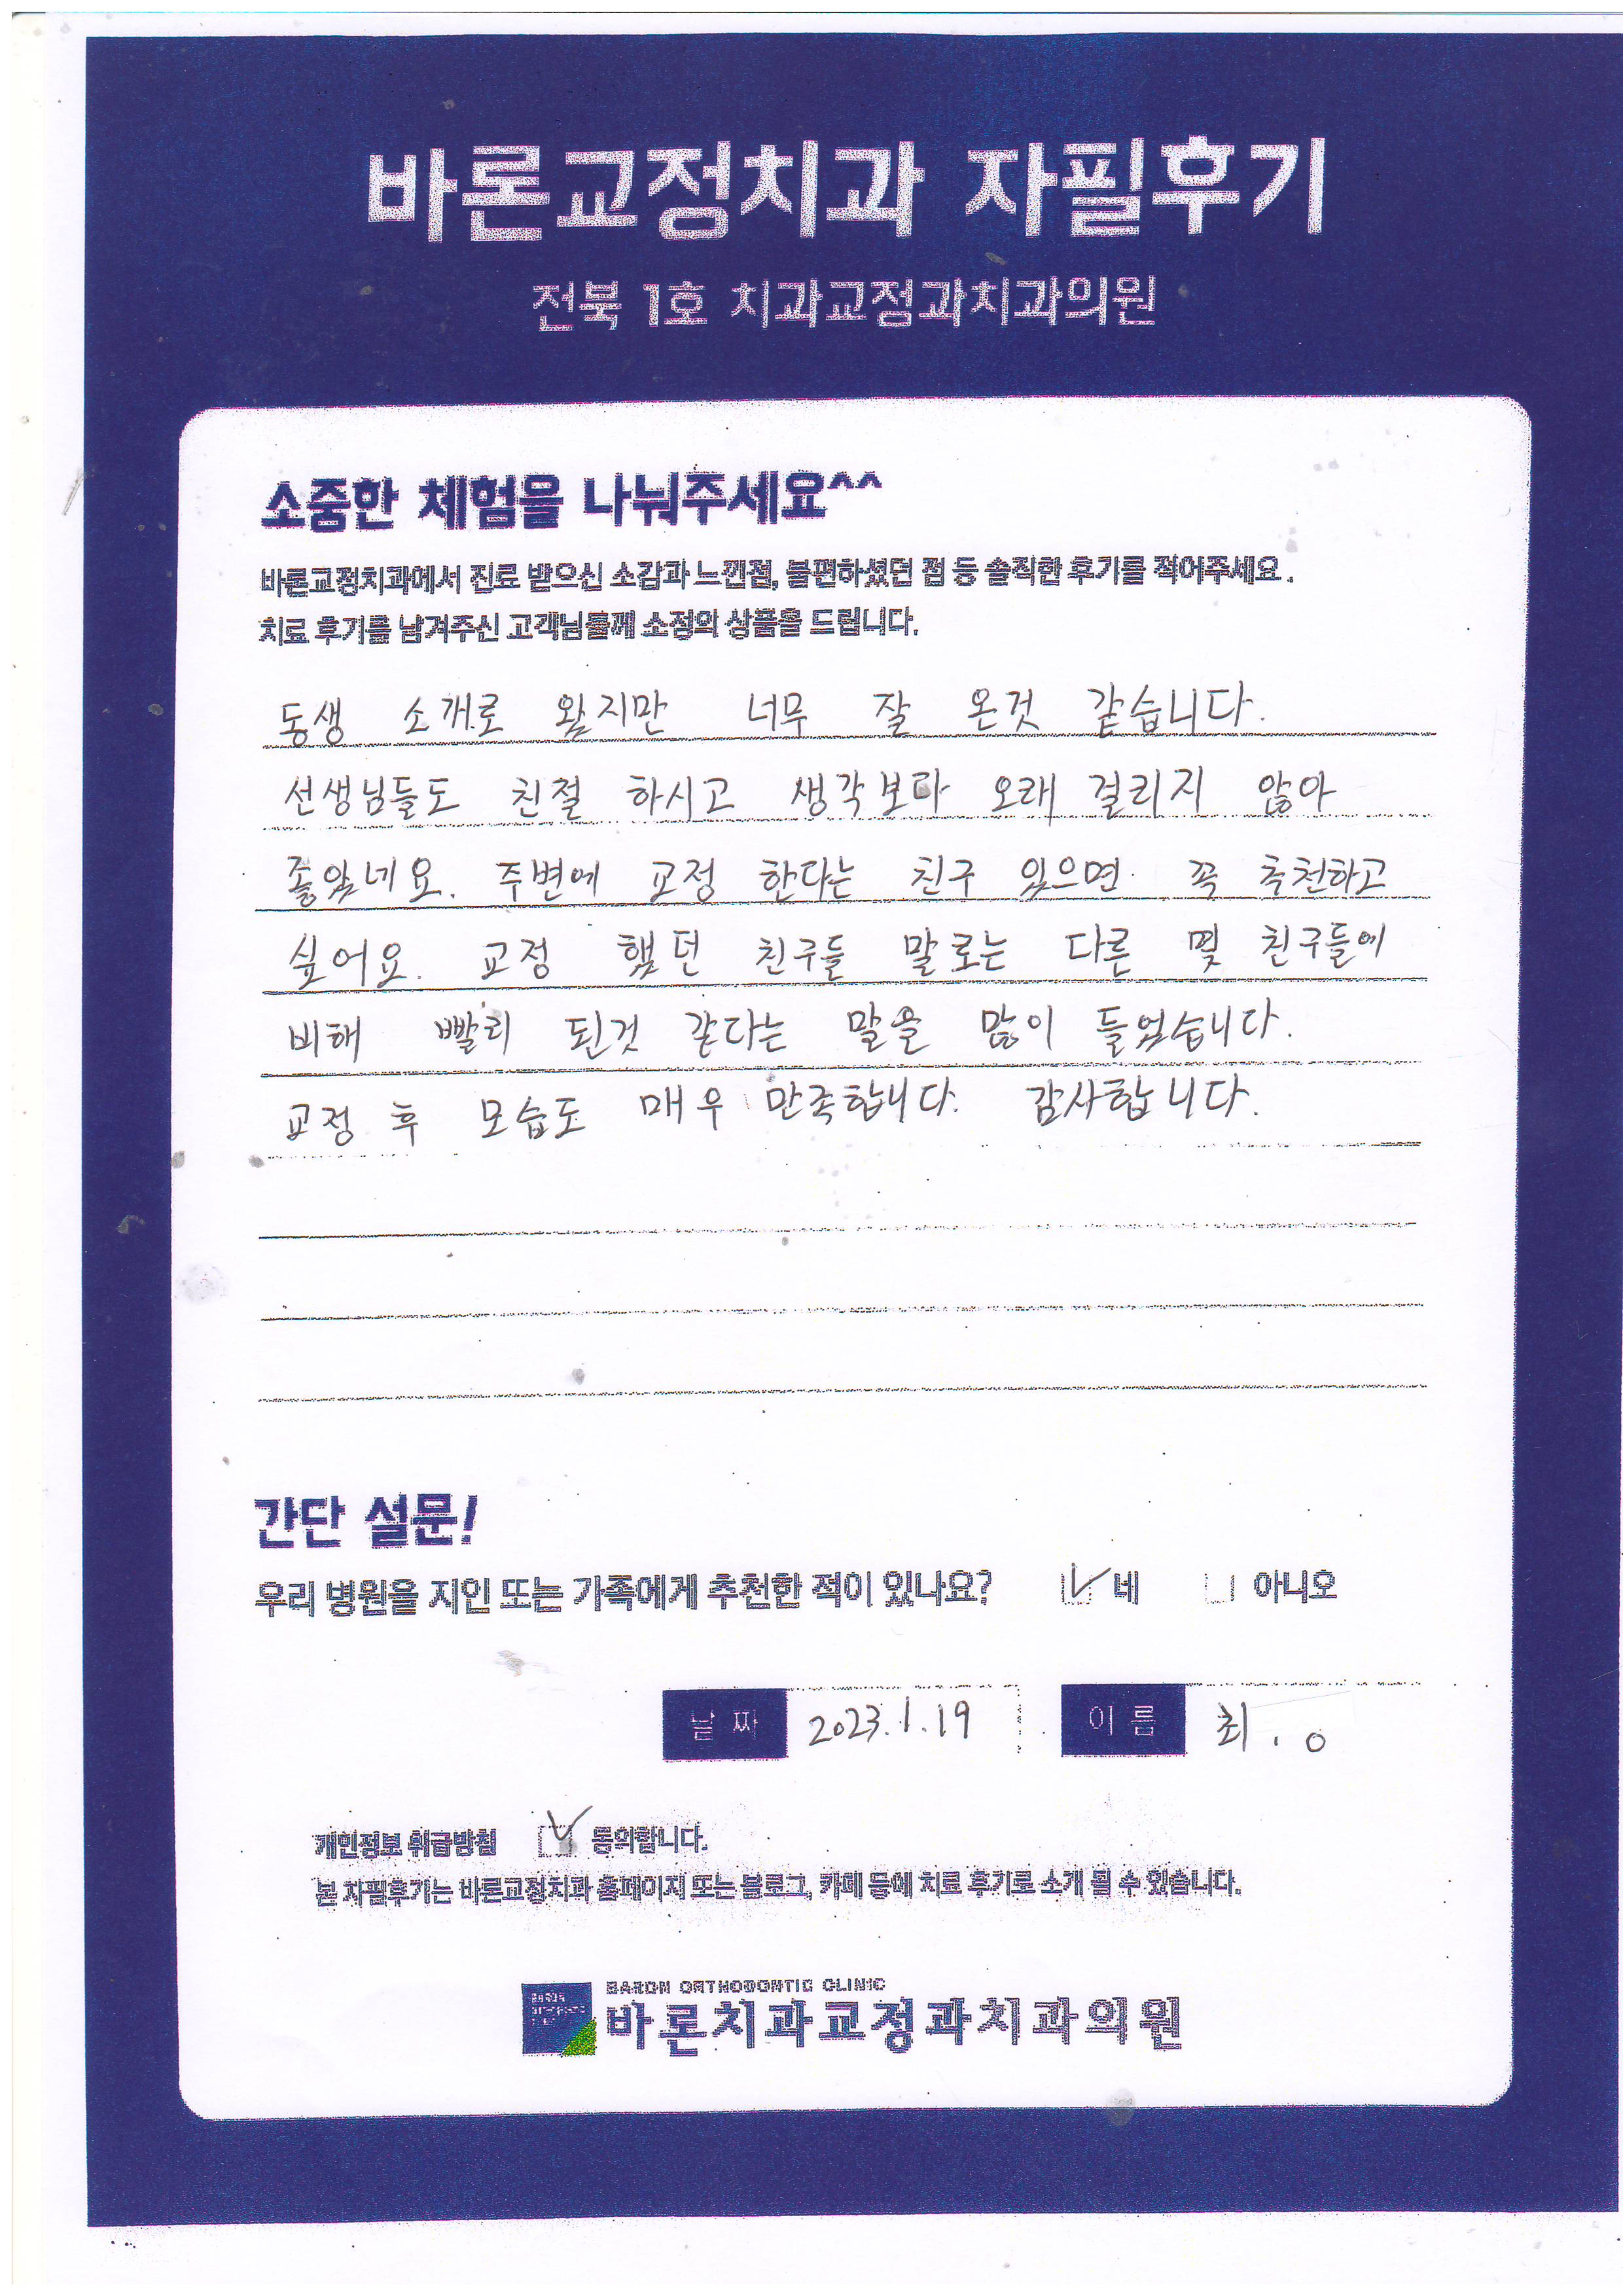 바론교정치과 자필후기
전북 1호 치과교정과치과의원
소중한 체험을 나눠주세요^^
바른교정치과에서 진료 받으신 소감과 느낀점, 불편하셨던 점 등 솔직한 후기를 적어주세요.
치료 후기를 남겨주신 고객님들께 소정의 상품을 드립니다.
동생 소개로 왔지만 너무 잘 온것 같습니다.
선생님들도 친절 하시고 생각보다 오래 걸리지 않아
좋았네요. 주변에 교정 한다는 친구 있으면 꼭 추천하고
싶어요. 교정 했던 친구들 말로는 다른 몇 친구들에
비해 빨리 된것 같다는 말을 많이 들었습니다.
교정 후 모습도 매우 만족합니다. 감사합니다.
간단 설문!
우리 병원을 지인 또는 가족에게 추천한 적이 있나요? 네 아니오
날짜 2023.1.19 이름 최.o
개인정보 취급방침 동의합니다.
본 자필후기는 바론교정치과 홈페이지 또는 블로그, 카페 등에 치료 후기로 소개 될 수 있습니다.
BARON ORTHODONTIC CLINIC
바론치과교정과치과의원